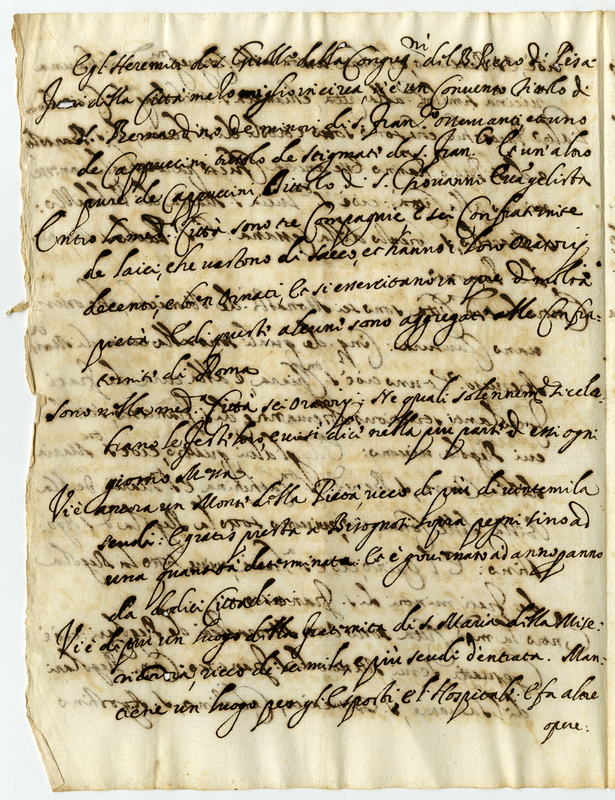 Egl' Heremiti di S. Girolº della Congregni del B. Pietro di Pisa
fuori della Città mezo miglio in circa vi è un Convento titolo di
S. Bernardino de minori di S. Fran.co osservanti et uno
de Cappuccini titolo de stigmati de S. Fran.co Et un' altro
pure de Cappuccini titolo di S. Giovanni Evangelista
Entro la med.ma Città sono tre Compagnie e sei Confraternite
de laici, che vestono di sacco, et hanno i loro Oratorij
decenti, e ben ornati, et si essercitano in opere di molta
pietà E di questi alcuni sono aggregati alle Confra-
ternite di Roma
Sono nella med.a Città sei Oratorij; Ne quali solennem.te si cele-
brano le feste loro, e vi si dici nella più parte d'essi ogni
giorno Messa
Vi è ancora un Monte della Pietà, ricco di più di vintemila
scudi: E gratis presta a Bisognosi sopra pegni sino ad
una quantità determinata: Et è governato ad anno p anno
da dodici Cittadini
Vi è di più un luogo della fraternita di S. Maria della Mise:
ricordia, ricco di seimila e più scudi d'entrata. Man-
tiene un luogo per gl' Esposti, e l' Hospitale: E fa altre
opere: